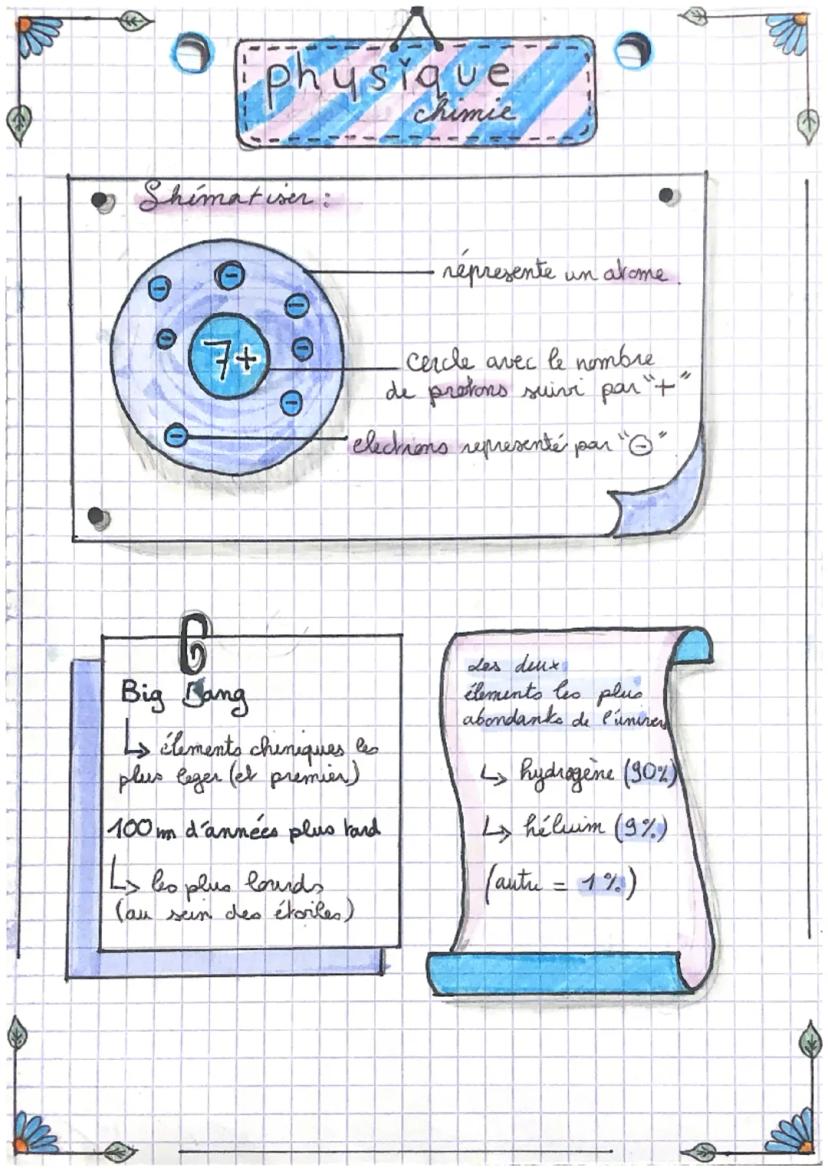 physique
chimie
Shématiser :
répresente un atome.
7+
cercle avec le nombre
de protons suivi par "+"
electrons representé par "⊖"
Big Bang
↳ élements chimiques les
plus leger (et premier)
100 m d'années plus tard
↳ les plus lourds
(au sein des étoiles)
Les deux
élements les plus
abondants de l'univers
↳ hydrogène (90%)
↳ héluim (9%)
(autre = 1%)